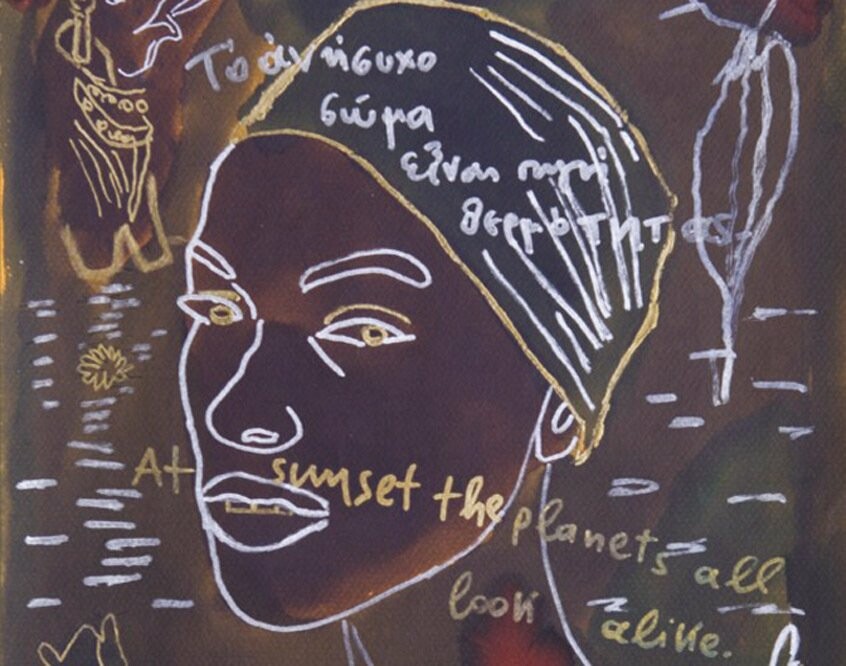 Το ἀνήσυχο
σώμα
εἶναι πηγή
θερμότητας.
At sunset the planets all
look alike.